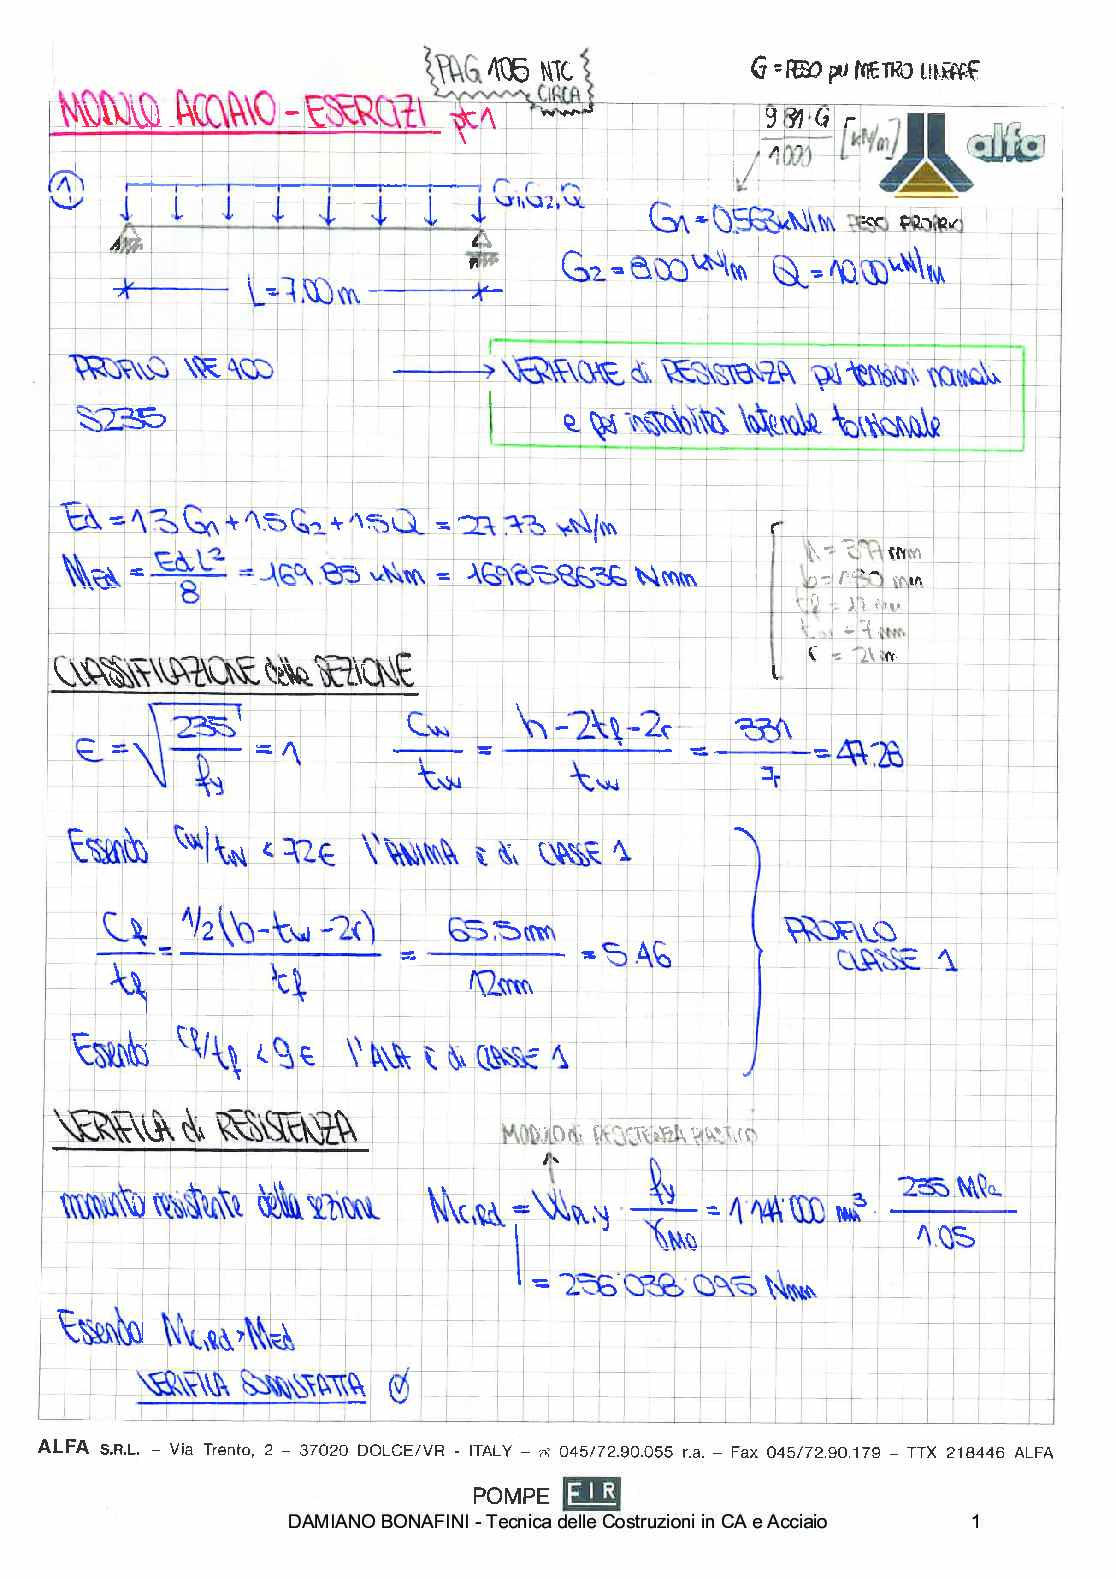 {PAG 105 NTC CIRCA}
G = PESO per METRO LINEARE
MODULO ACCIAIO - ESERCIZI pt1
9.81·G / 1000 [kN/m]
alfa
① G1, G2, Q
G1 = 0.563 kN/m PESO PROPRIO
G2 = 8.00 kN/m Q = 10.00 kN/m
L = 7.00 m
PROFILO IPE 400 → VERIFICHE di RESISTENZA per tensioni normali
S235 e per instabilità laterale torsionale
Ed = 1.3 G1 + 1.5 G2 + 1.5 Q = 27.73 kN/m
MEd = Ed L² / 8 = 169.85 kNm = 169858636 Nmm
b = 180 mm
tw = 7 mm
r = 21 m
CLASSIFICAZIONE della SEZIONE
ε = √(235 / fy) = 1 Cw / tw = (h - 2tf - 2r) / tw = 331 / 7 = 47.28
Essendo Cw/tw < 72ε l'ANIMA è di CLASSE 1
Cf / tf = 1/2 (b - tw - 2r) / tf = 65.5 mm / 12 mm = 5.46
PROFILO CLASSE 1
Essendo Cf/tf < 9ε l'ALA è di CLASSE 1
VERIFICA di RESISTENZA
MODULO di RESISTENZA PLASTICO
momento resistente della sezione Mc,Rd = Wpl,y · fy / γM0 = 1'144'000 mm³ · 235 MPa / 1.05
= 256'038'095 Nmm
Essendo Mc,Rd > MEd
VERIFICA SODDISFATTA
ALFA S.R.L. – Via Trento, 2 – 37020 DOLCE/VR - ITALY – ☏ 045/72.90.055 r.a. – Fax 045/72.90.179 – TTX 218446 ALFA
POMPE FIR
DAMIANO BONAFINI - Tecnica delle Costruzioni in CA e Acciaio 1